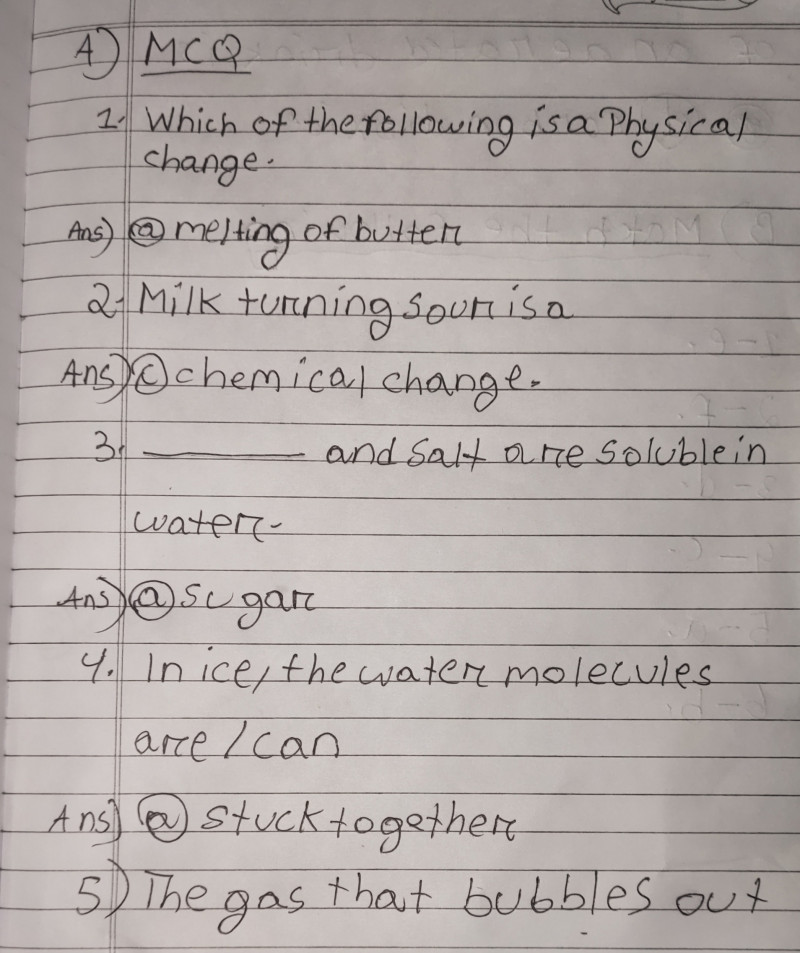 A) MCQ
1. Which of the following is a Physical
change.
Ans) (a) melting of butter
2. Milk turning sour is a
Ans) (c) chemical change.
3. ______ and Salt are soluble in
water-
Ans) (a) sugar
4. In ice, the water molecules
are / can
Ans) (a) stuck together
5) The gas that bubbles out